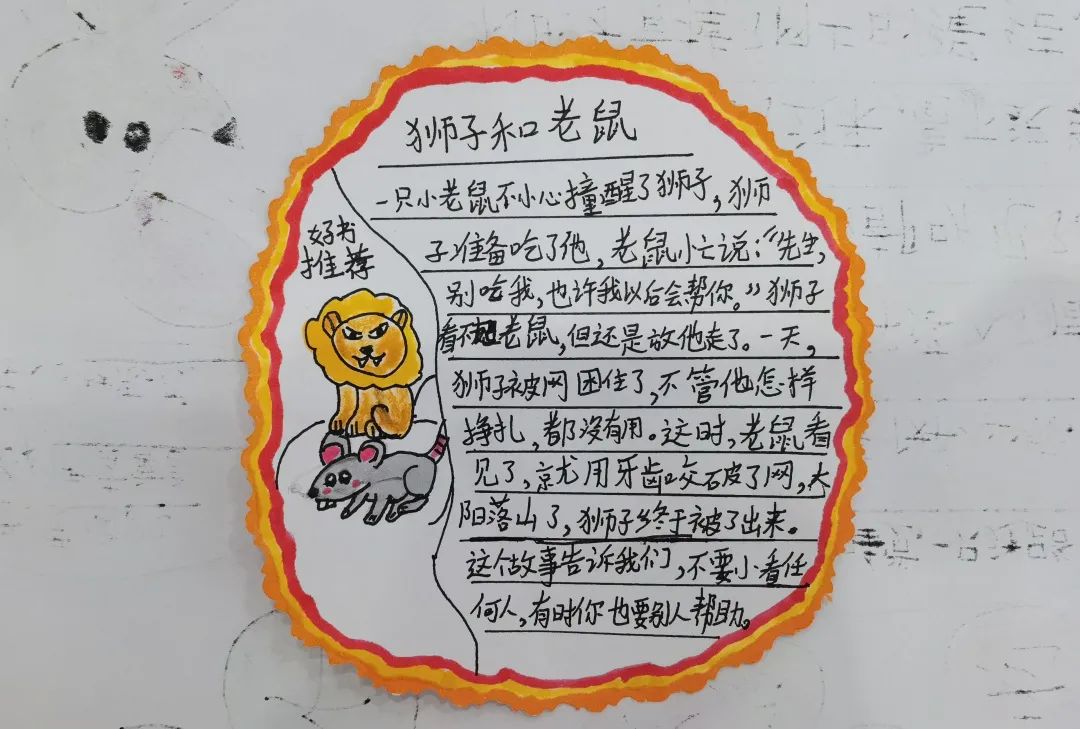 狮子和老鼠
好书
推荐
一只小老鼠不小心撞醒了狮子，狮
子准备吃了他，老鼠忙说：“先生，
别吃我，也许我以后会帮你。”狮子
看不起老鼠，但还是放他走了。一天，
狮子被网困住了，不管他怎样
挣扎，都没有用。这时，老鼠看
见了，就用牙齿咬破了网，太
阳落山了，狮子终于被了出来。
这个故事告诉我们，不要小看任
何人，有时你也要别人帮助。